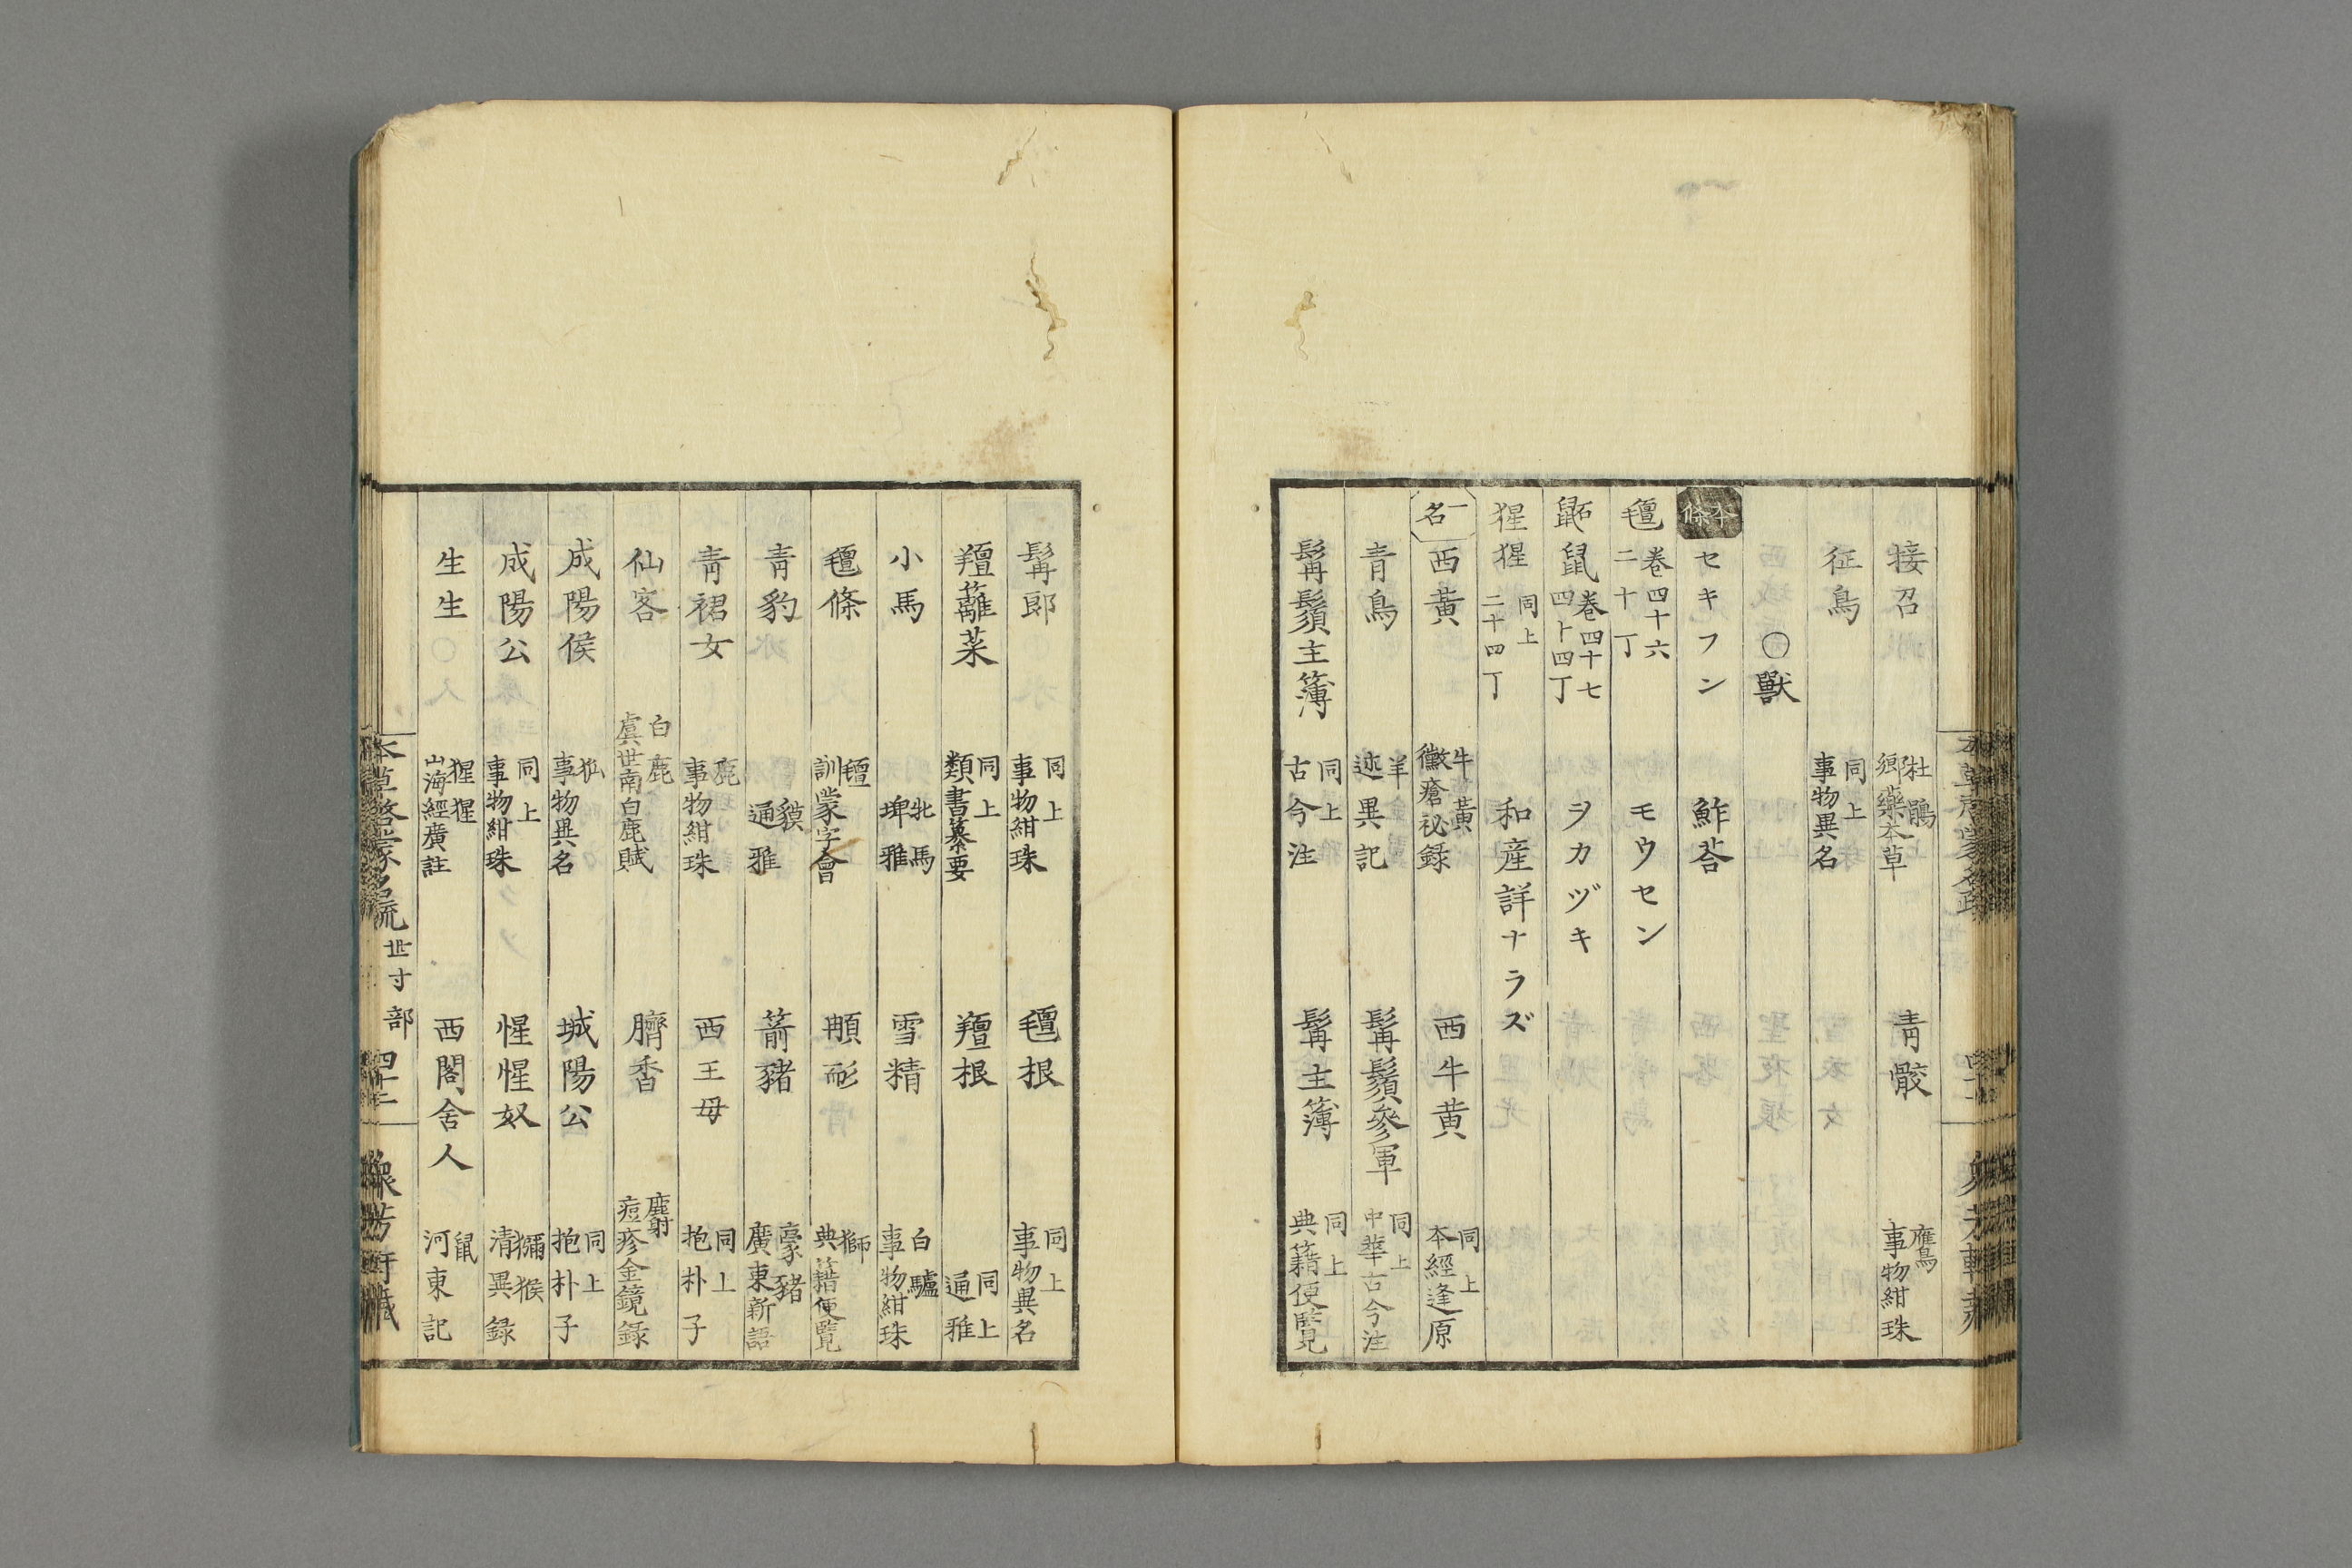 接召 杜鵑 郷藥本草 青骹 雁鳥 事物紺珠
征鳥 同上 事物異名
○獸
本條 セキフン 鮓荅
氊 卷四十六 二十丁 モウセン
鼫鼠 卷四十七 四十四丁 ヲカヅキ
猩猩 同上 二十四丁 和産詳ナラズ
一名 西黄 牛黄 黴瘡祕録 西牛黄 同上 本經逢原
青烏 羊 述異記 髯鬚參軍 同上 中華古今注
髯鬚主簿 同上 古今注 髯主簿 同上 典籍便覽
髯郎 同上 事物紺珠 氊根 同上 事物異名
羶蘺菜 同上 類書纂要 羶根 同上 通雅
小馬 牝馬 埤雅 雪精 白驢 事物紺珠
氊條 氊 訓蒙字會 獅 典籍便覽
青豹 貘 通雅 箭豬 豪豬 廣東新語
青裙女 鹿 事物紺珠 西王母 同上 抱朴子
仙客 白鹿 虞世南白鹿賦 臍香 麝 痘疹金鏡録
成陽侯 狐 事物異名 城陽公 同上 抱朴子
成陽公 同上 事物紺珠 惺惺奴 獼猴 清異録
生生 猩猩 山海經廣註 西閣舍人 鼠 河東記
本草啓蒙名疏 世寸部 四十二 衆芳軒藏